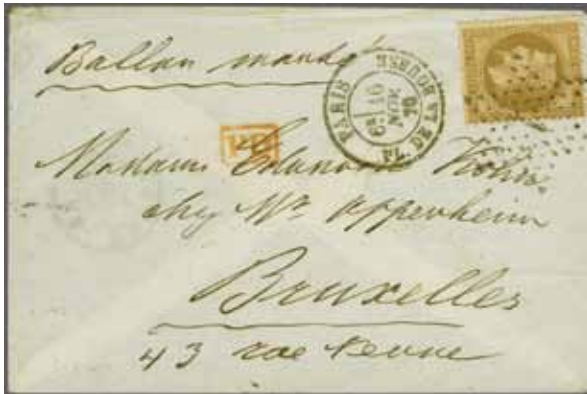 Ballon monté
PARIS PL. DE LA BOURSE
6E 16
NOV.
70
PD
Madame Edouard Kohn
chez Mr Oppenheim
Bruxelles
43 rue